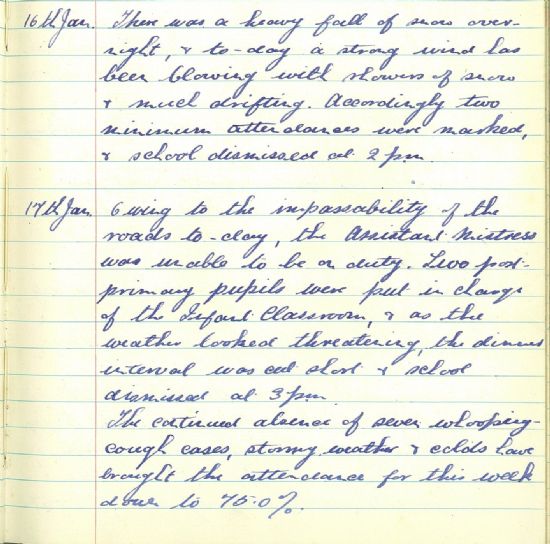 16th Jan. There was a heavy fall of snow over-
night, & to-day a strong wind has
been blowing with showers of snow
& much drifting. Accordingly two
minimum attendances were marked,
& school dismissed at 2 pm.
17th Jan. Owing to the impassability of the
roads to-day, the Assistant Mistress
was unable to be on duty. Two post-
primary pupils were put in charge
of the Infant Classroom, & as the
weather looked threatening, the dinner
interval was cut short & school
dismissed at 3 pm
The continued absence of seven whooping-
cough cases, stormy weather & colds have
brought the attendance for this week
down to 75.0%.